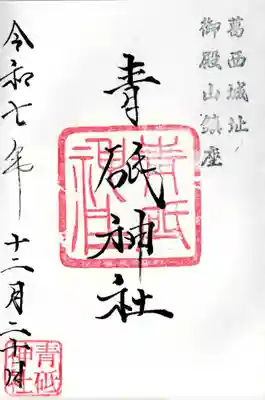 葛西城址
御殿山鎮座
青砥神社
令和七年
十二月二十日
青砥
神社